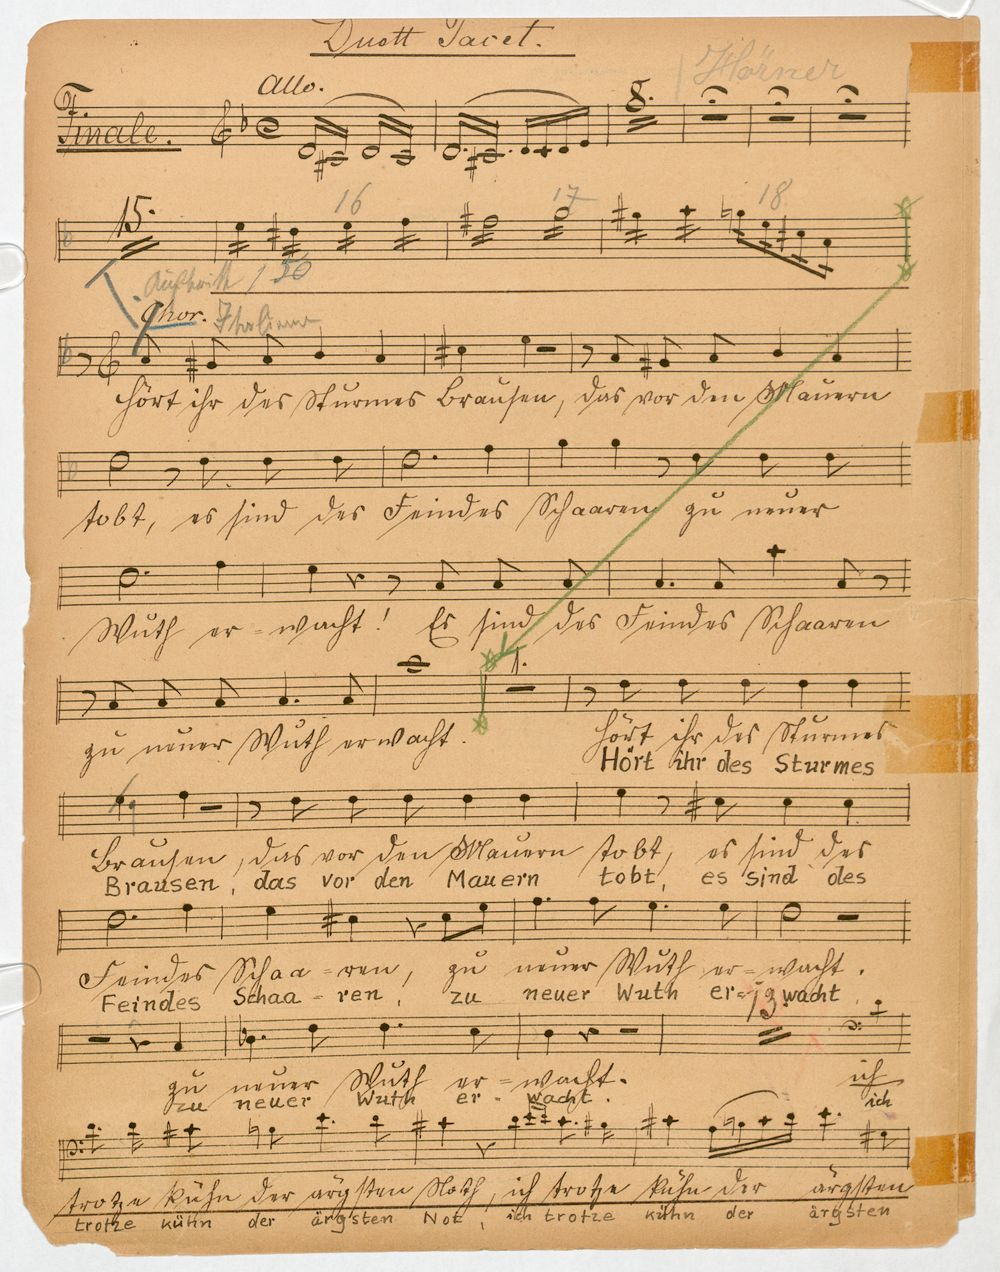 Duett Tacet.
Hörner
Allo.
Finale. 8.
15. 16 17 18
Auftritt 1 50
Chor.
hört ihr des Sturmes Brausen, das vor den Mauern
tobt, es sind des Feindes Schaaren zu neuer
Wuth er=wacht! Es sind des Feindes Schaaren
1.
zu neuer Wuth erwacht. hört ihr des Sturmes
Hört ihr des Sturmes
Brausen, das vor den Mauern tobt, es sind des
Brausen, das vor den Mauern tobt, es sind des
Feindes Schaa=ren, zu neuer Wuth er=wacht.
Feindes Schaa-ren, zu neuer Wuth er=wacht
13
zu neuer Wuth er=wacht. ich
zu neuer Wuth er-wacht. ich
trotze kühn der ärgsten Noth, ich trotze kühn der ärgsten
trotze kühn der ärgsten Not, ich trotze kühn der ärgsten